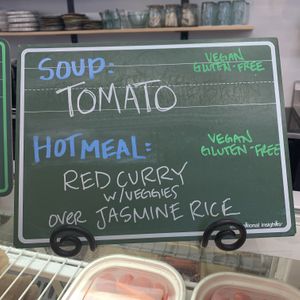 SOUP:
VEGAN
GLUTEN-FREE
TOMATO
HOT MEAL:
VEGAN
GLUTEN-FREE
RED CURRY
W/VEGGIES
OVER JASMINE RICE